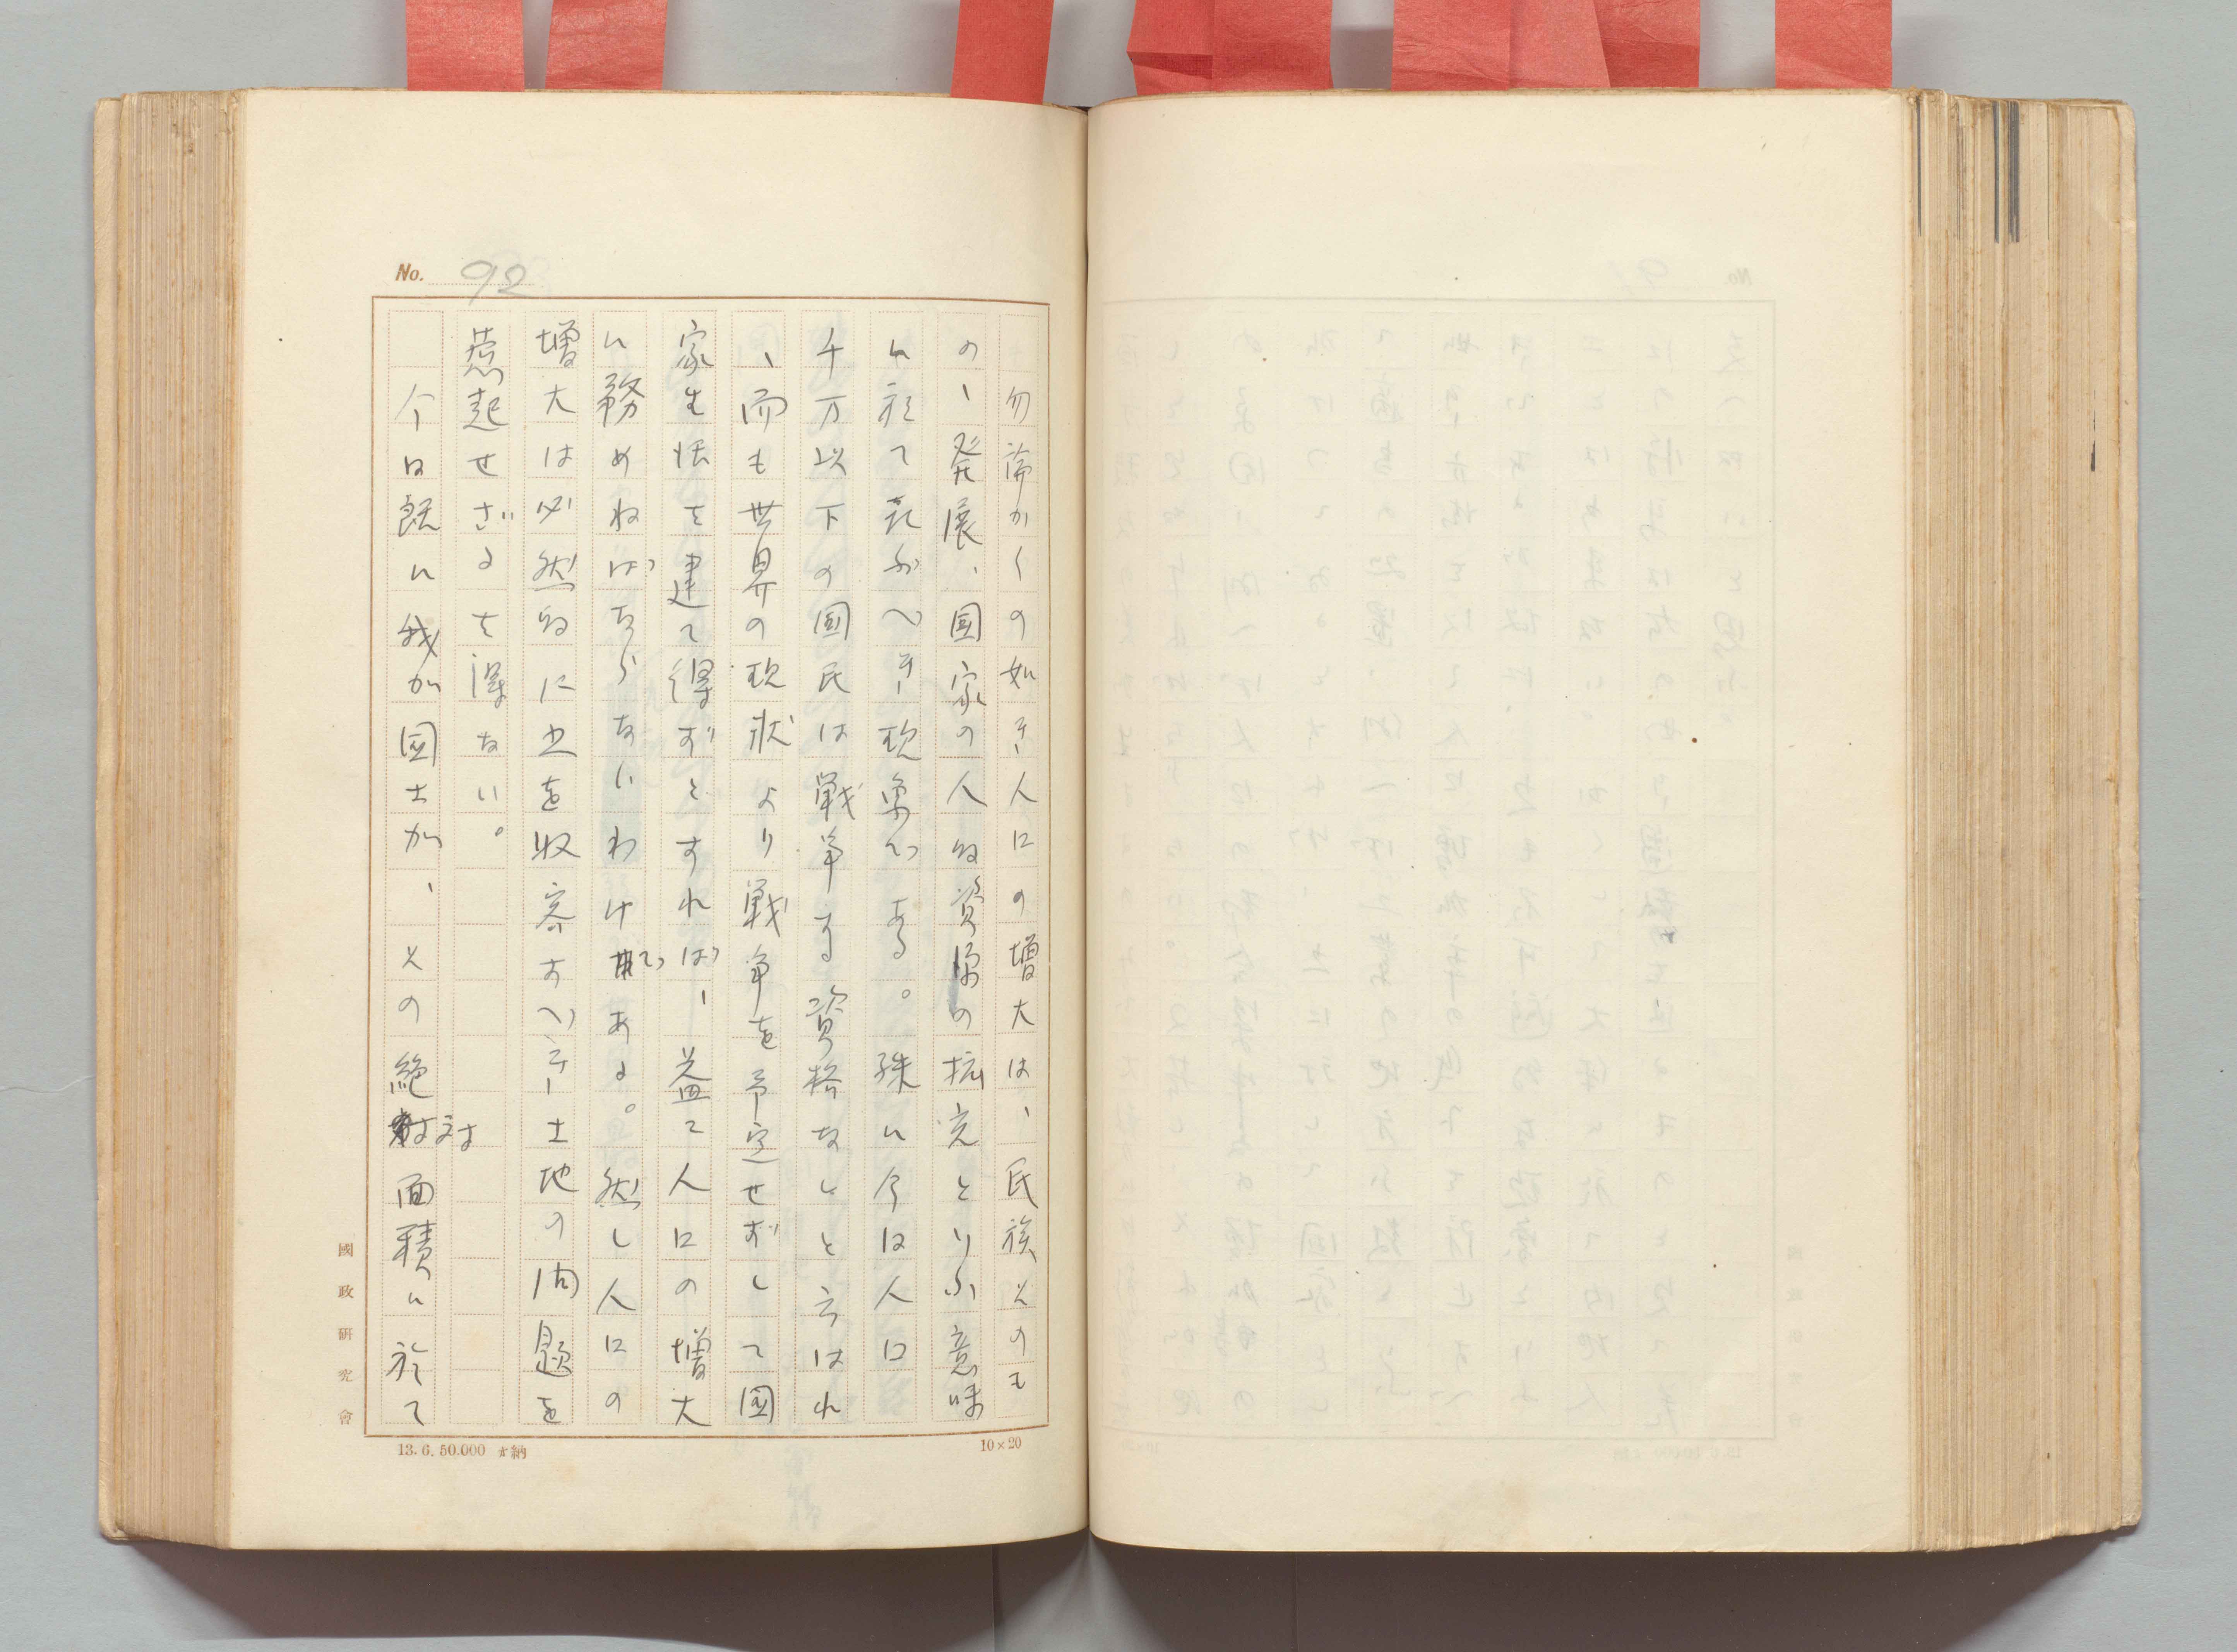 No. 92
勿論かくの如き人口の増大は、民族そのも
の、発展、国家の人的資源の拡充といふ意味
に於て喜ぶべき現象である。殊に今日人口
千万以下の國民は戦争する資格なしと云はれ
、而も世界の現状より戦争を予定せずして国
家生活を建て得ずとすれば、益々人口の増大
に務めねばならないわけである。然し人口の
増大は必然的に之を収容すべき土地の問題を
惹起せざるを得ない。
今日既に我が国土が、その絶対面積に於て
國政研究會
13.6.50.000 納
10×20